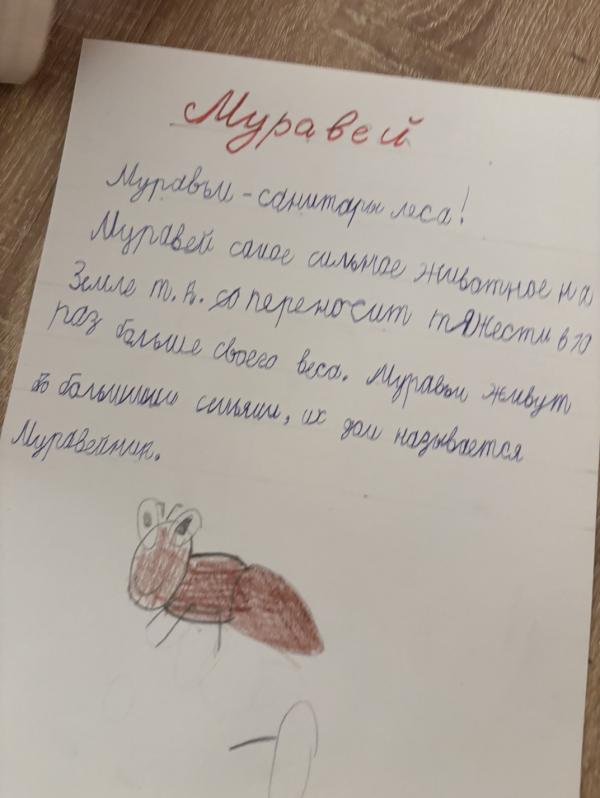 Муравей
Муравьи - санитары леса!
Муравей самое сильное животное на
Земле т. к. переносит тяжести в 10
раз больше своего веса. Муравьи живут
большими семьями, их дом называется
Муравейник.